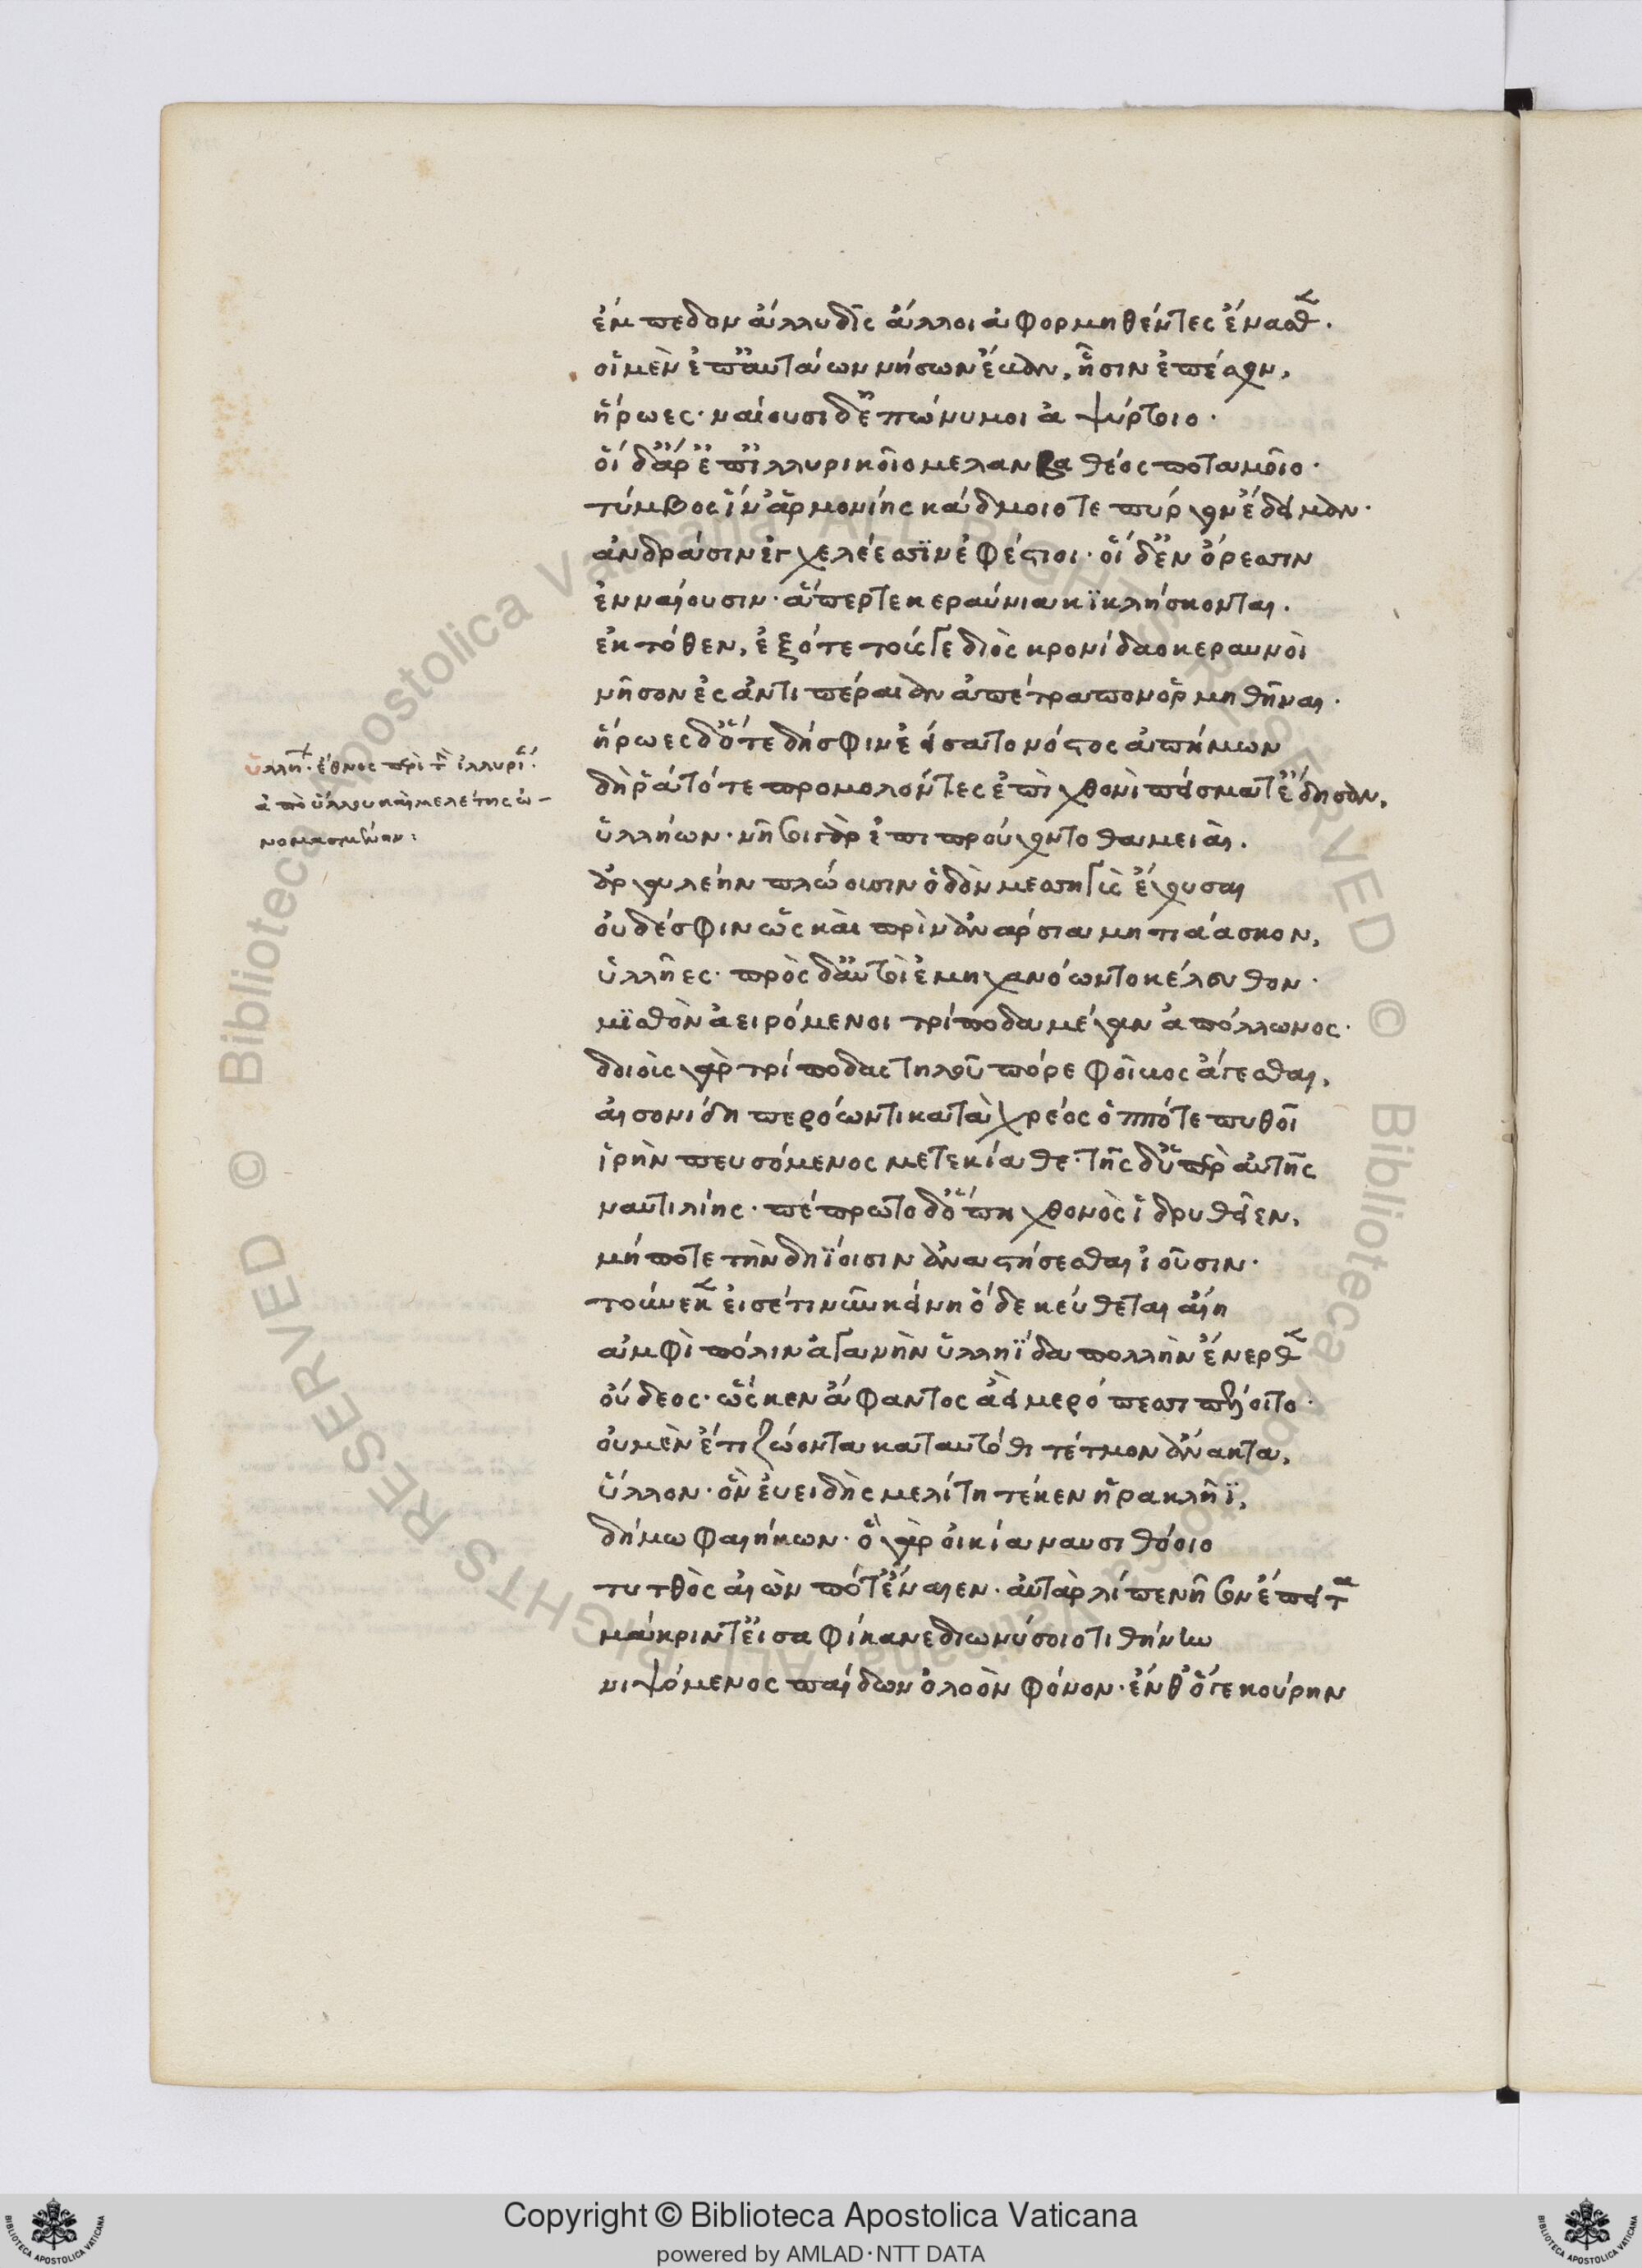 ἔμπεδον ἄλλυδις ἄλλοι ἀφορμηθέντες ἔνασθ.
οἳ μὲν ἐπ' αὐτάων νήσων ἔβαν, ᾗσιν ἐπέσχον,
ἥρωες· ναίουσι δ' ἐπώνυμοι ἀψύρτοιο.
οἵ δ' ἄρ' ἐπ' ἰλλυρικοῖο μελανβαθέος ποταμοῖο.
τύμβος ἵν' ἁρμονίης κάδμοιο τε πύργον ἔδειμαν.
ἀνδράσιν ἐγχελέεσσϊν ἐφέστιοι· οἵ δ' ἐν ὄρεσσιν
ἐνναίουσιν· ἅπερ τε κεραύνια κϊκλήσκονται.
ἐκ τόθεν, ἐξότε τούς γε διὸς κρονίδαο κεραυνοὶ
νῆσον ἐς ἀντιπέραιαν ἀπέτραπον ὁρμηθῆναι.
ἥρωες δ' ὅτε δή σφιν ἐείσατο νόστος ἀπήμων
δή ῥα τότε προμολόντες ἐπὶ χθονὶ πείσματ' ἔδησαν,
ὑλλήων· νῆσοι γὰρ ἐπιπρούχοντο θαμειαὶ.
ἀργαλέην πλώοισιν ὁδὸν μεσσηγὺς ἔχουσαι
οὐδέ σφιν ὣς καὶ πρὶν ἀνάρσια μητιάασκον,
ὑλλῆες· πρὸς δ' αὐτοὶ ἐμηχανόωντο κέλευθον·
μϊσθὸν ἀειρόμενοι τρίποδα μέγαν ἀπόλλωνος.
δοιοὺς γὰρ τρίποδας τηλοῦ πόρε φοῖβος ἄγεσθαι,
αἰσονίδη περόωντι κατὰ χρέος ὁππότε πυθοῖ
ἱρὴν πευσόμενος μετεκίαθε· τῆς δ' ὑπὲρ αὐτῆς
ναυτιλίης· πέπρωτο δ' ὅπη χθονὸς ἱδρυθεῖεν,
μή ποτε τὴν δηΐοισιν ἀναστήσεσθαι ἰοῦσιν·
τούνεκ' εἰσέτι νῦν κείνη ὅδε κεύθεται αἴη
ἀμφὶ πόλιν ἀγανὴν ὑλληΐδα πολλὴν ἔνερθ
οὔδεος· ὥς κεν ἄφαντος ἀεὶ μερόπεσσι πέλοιτο·
οὐ μὲν ἔτι ζώοντα καταυτόθι τέτμον ἄνακτα,
ὕλλον· ὃν ἐυειδὴς μελίτη τέκεν ἡρακλῆϊ,
δήμω φαιήκων· ὃ γὰρ οἰκία ναυσιθόοιο
τυτθὸς αἰὼν πότ' ἔναιεν· ἀτὰρ λίπε νῆσον ἔπειτα
μάκριν τ' εἰσαφίκανε διωνύσοιο τιθήνην
νιψόμενος παίδων ὀλοὸν φόνον· ἔνθ' ὅγε κούρην
ὕλλη· ἔθνος περὶ τ ἰλλυρί·
ἀπὸ ὕλλου καὶ μελέτης ὠ-
νομασμένον:
© Biblioteca Apostolica Vaticana ALL RIGHTS RESERVED © Biblioteca Apostolica Vaticana ALL RIGHTS RESERVED
Copyright © Biblioteca Apostolica Vaticana
powered by AMLAD·NTT DATA
BIBLIOTECA APOSTOLICA VATICANA
BIBLIOTECA APOSTOLICA VATICANA